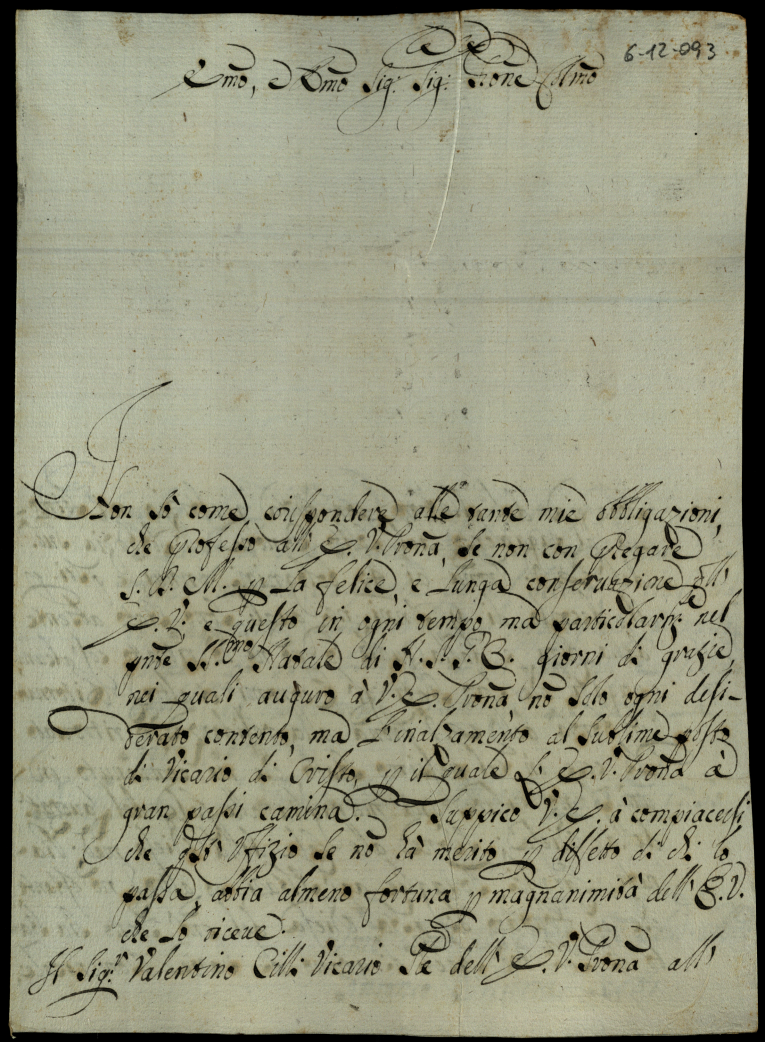 6-12-093
Emo, e Rmo Sig.r Sig.r Prone Colmo
Non sò come corrispondere alle tante mie obbligazioni,
che professo all' E. V. Prona, se non con pregare
S. D. M. p la felice, e lunga conservazione dell'
E. V., e questo in ogni tempo, ma particolarm.te nel
pnte SS.mo Natale di N. S. G. C. giorni di grazie,
nei quali auguro à V. E. Prona nō solo ogni desi-
derato contento, ma l'inalzamento al sublime posto
di Vicario di Cristo, p il quale l' E. V. Prona à
gran passi camina. Supplico V. E. à compiacersi
che qsto Uffizio se nō hà merito p diffetto di chi lo
passa, abbia almeno fortuna p magnanimità dell' E. V.
che lo riceue.
Il Sig.r Valentino Cilli Vicario Gle dell' E. V. Prona all'